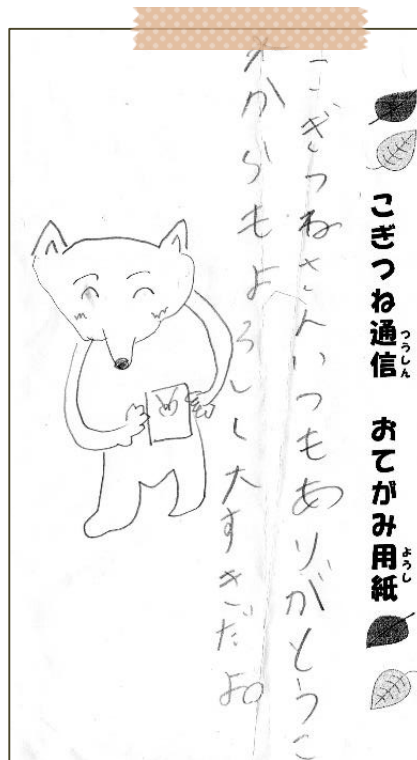 こぎつね通信 おてがみ用紙
つうしん
ようし
こぎつねさんいつもありがとうこ
れからもよろしく大すきだよ。